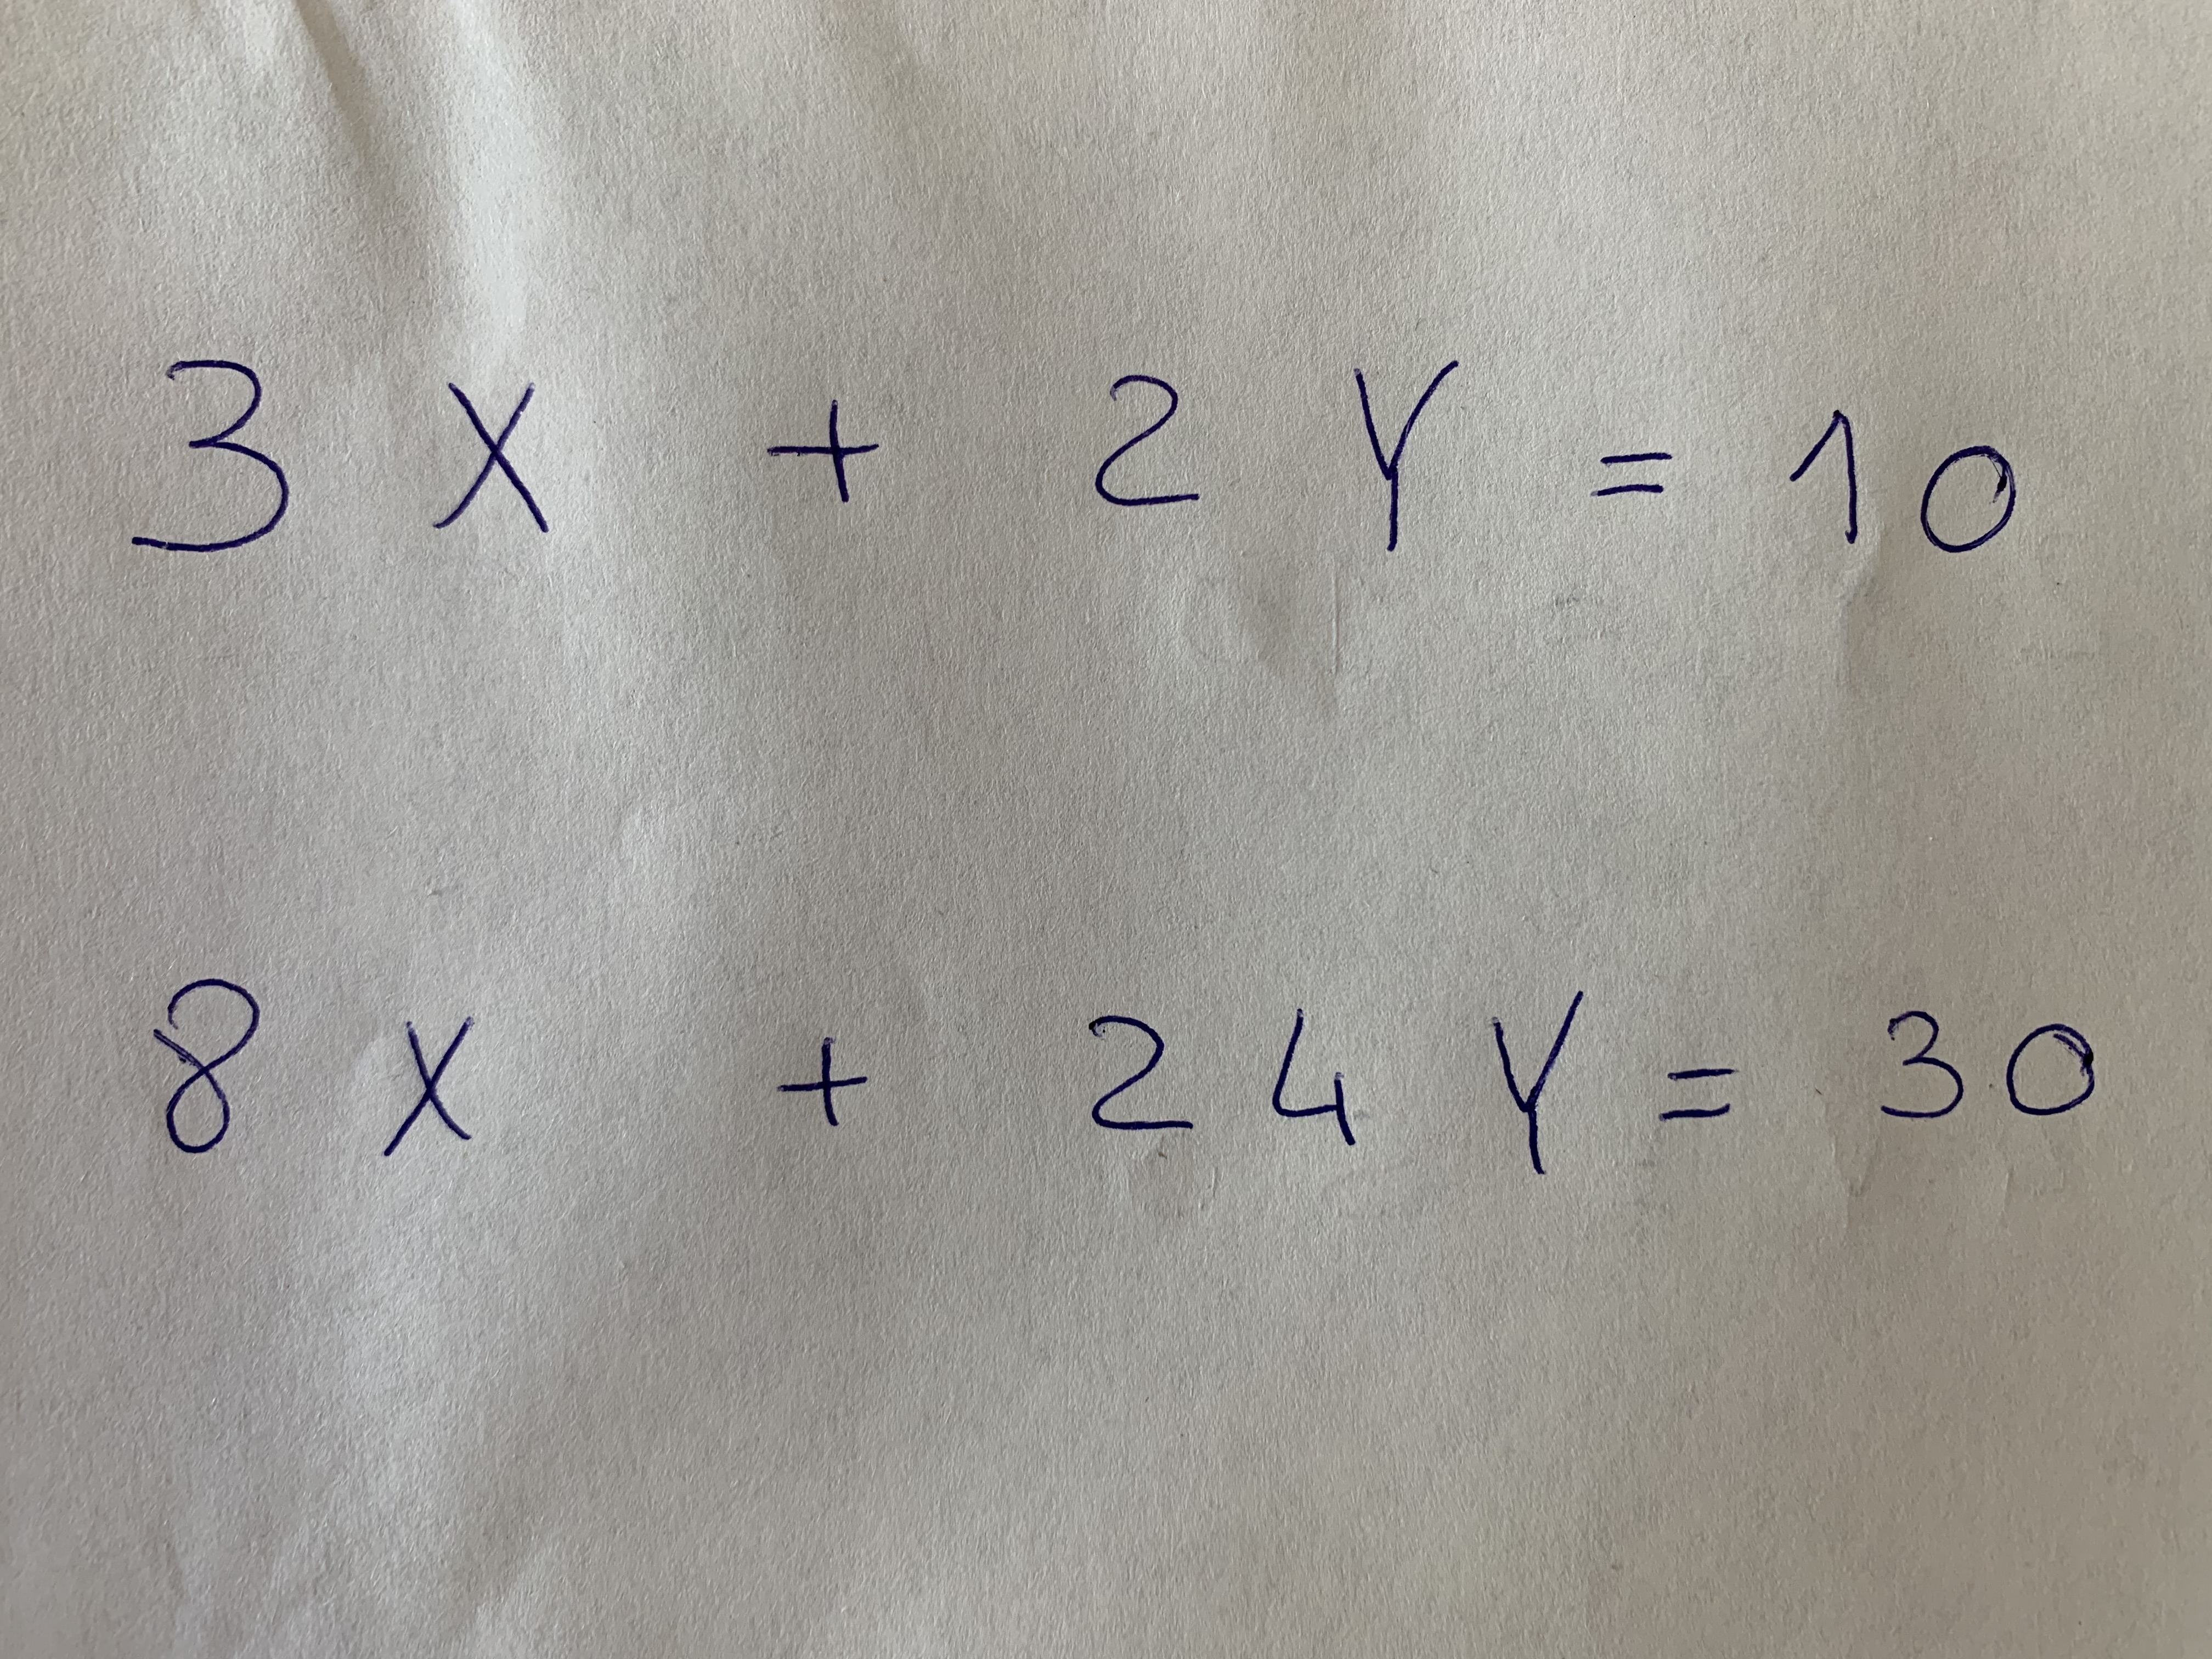 3 X + 2 Y = 10
8 X + 24 Y = 30